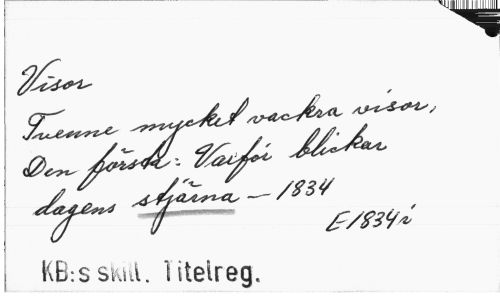 Visor
Tvenne mycket vackra visor,
Den första: Varför blickar
dagens stjärna - 1834
E1834i
KB:s skill. Titelreg.